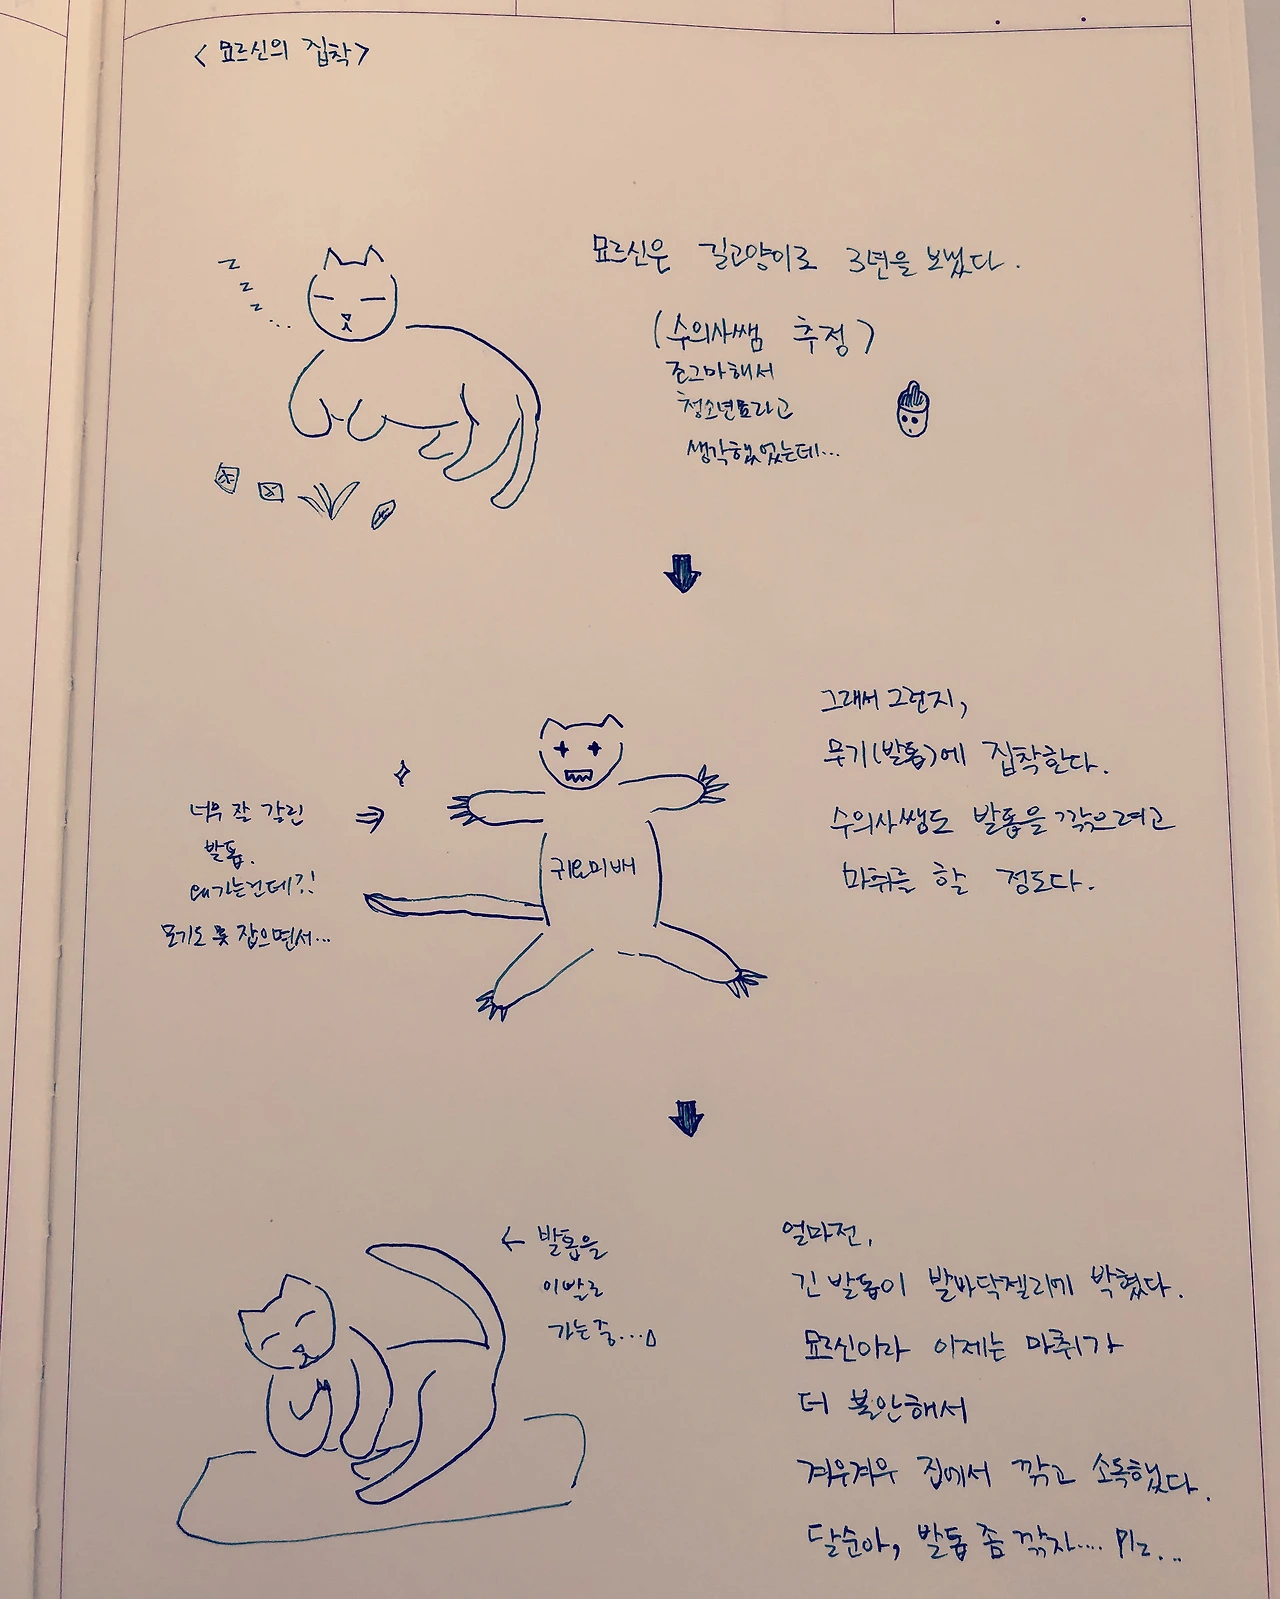 <묘르신의 집착>
z
z
z...
묘르신은 길고양이로 3년을 보냈다.
(수의사쌤 추정)
조그마해서
청소년묘라고
생각했었는데...
그래서 그런지,
무기(발톱)에 집착한다.
수의사쌤도 발톱을 깎으려고
마취를 할 정도다.
너무 잘 갈린
발톱.
왜 가는건데?!
모기도 못 잡으면서...
귀요미배
← 발톱을
이빨로
가는 중...
얼마전,
긴 발톱이 발바닥젤리에 박혔다.
묘르신이라 이제는 마취가
더 불안해서
겨우겨우 집에서 깎고 소독했다.
달순아, 발톱 좀 깎자.... Plz...